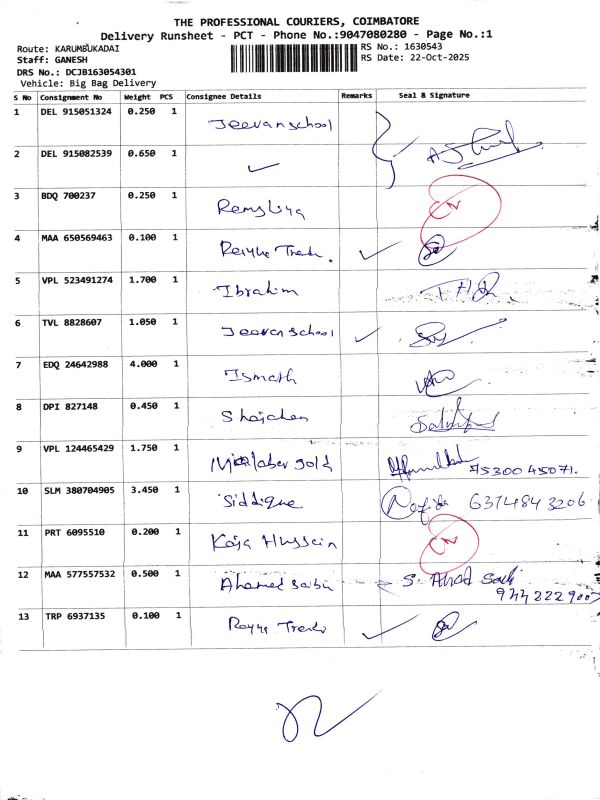 THE PROFESSIONAL COURIERS, COIMBATORE
Delivery Runsheet - PCT - Phone No.:9047080280 - Page No.:1
Route: KARUMBUKADAI
RS No.: 1630543
Staff: GANESH
RS Date: 22-Oct-2025
DRS No.: DCJB163054301
Vehicle: Big Bag Delivery
S No Consignment No Weight PCS Consignee Details Remarks Seal & Signature
1 DEL 915051324 0.250 1 Jeevan school
2 DEL 915082539 0.650 1
3 BDQ 700237 0.250 1 CN
4 MAA 650569463 0.100 1
5 VPL 523491274 1.700 1 Ibrahim
6 TVL 8828607 1.050 1 Jeevan school
7 EDQ 24642988 4.000 1 Ismath
8 DPI 827148 0.450 1 Shajahan
9 VPL 124465429 1.750 1 gold 7530045071.
10 SLM 380704905 3.450 1 Siddique 6374843206
11 PRT 6095510 0.200 1 Kaja Hussain CN
12 MAA 577557532 0.500 1 Ahamed
13 TRP 6937135 0.100 1